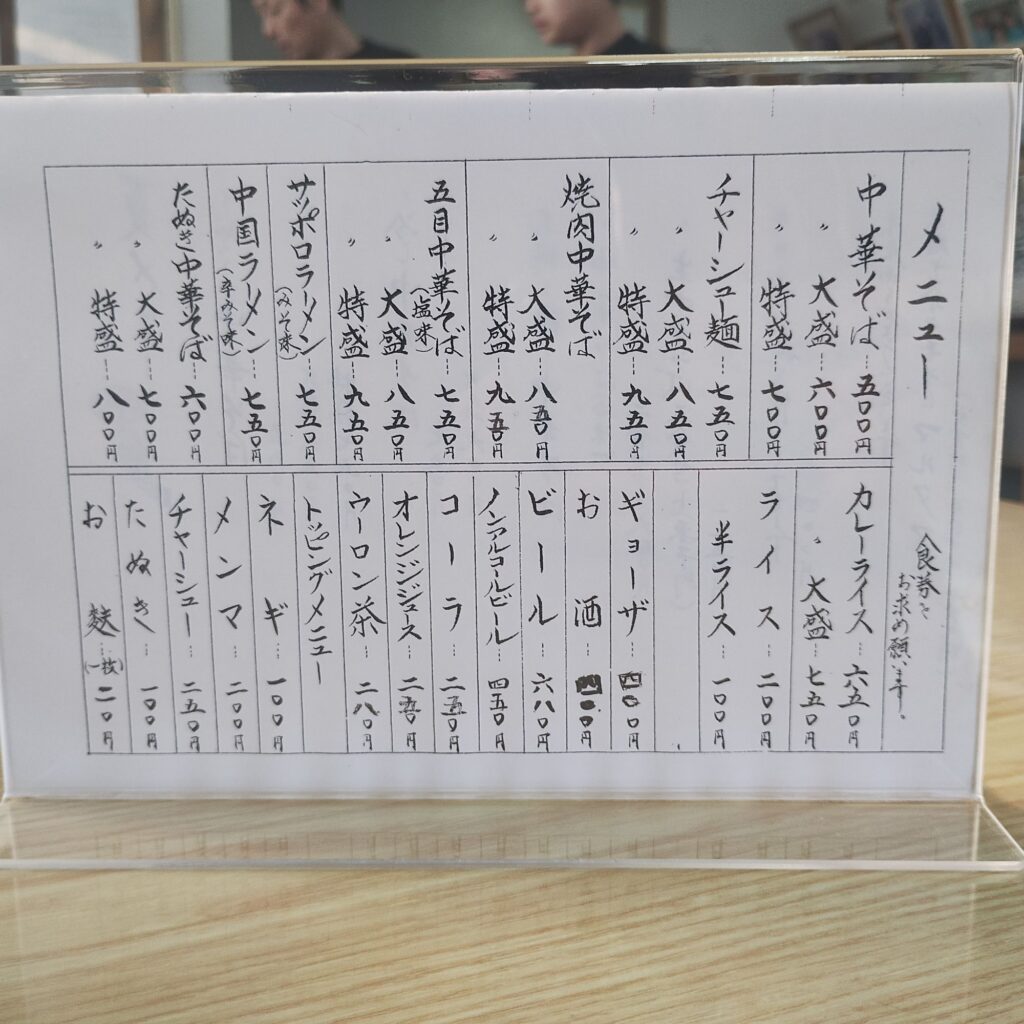 メニュー
食券を
お求め願います。
中華そば…五〇〇円
〃 大盛…六〇〇円
〃 特盛…七〇〇円
チャーシュー麺…七五〇円
〃 大盛…八五〇円
〃 特盛…九五〇円
焼肉中華そば
〃 大盛…八五〇円
〃 特盛…九五〇円
五目中華そば…七五〇円
(塩味)
〃 大盛…八五〇円
〃 特盛…九五〇円
サッポロラーメン…七五〇円
(みそ味)
中国ラーメン…七五〇円
(辛みそ味)
たぬき中華そば…六〇〇円
〃 大盛…七〇〇円
〃 特盛…八〇〇円
カレーライス…六五〇円
〃 大盛…七五〇円
ライス…二〇〇円
半ライス…一〇〇円
ギョーザ…四〇〇円
お酒…四〇〇円
ビール…六八〇円
ノンアルコールビール…四五〇円
コーラ…二五〇円
オレンジジュース…二五〇円
ウーロン茶…二八〇円
トッピングメニュー
ネギ…一〇〇円
メンマ…二〇〇円
チャーシュー…二五〇円
たぬき…一〇〇円
お麩…(一枚)二〇円